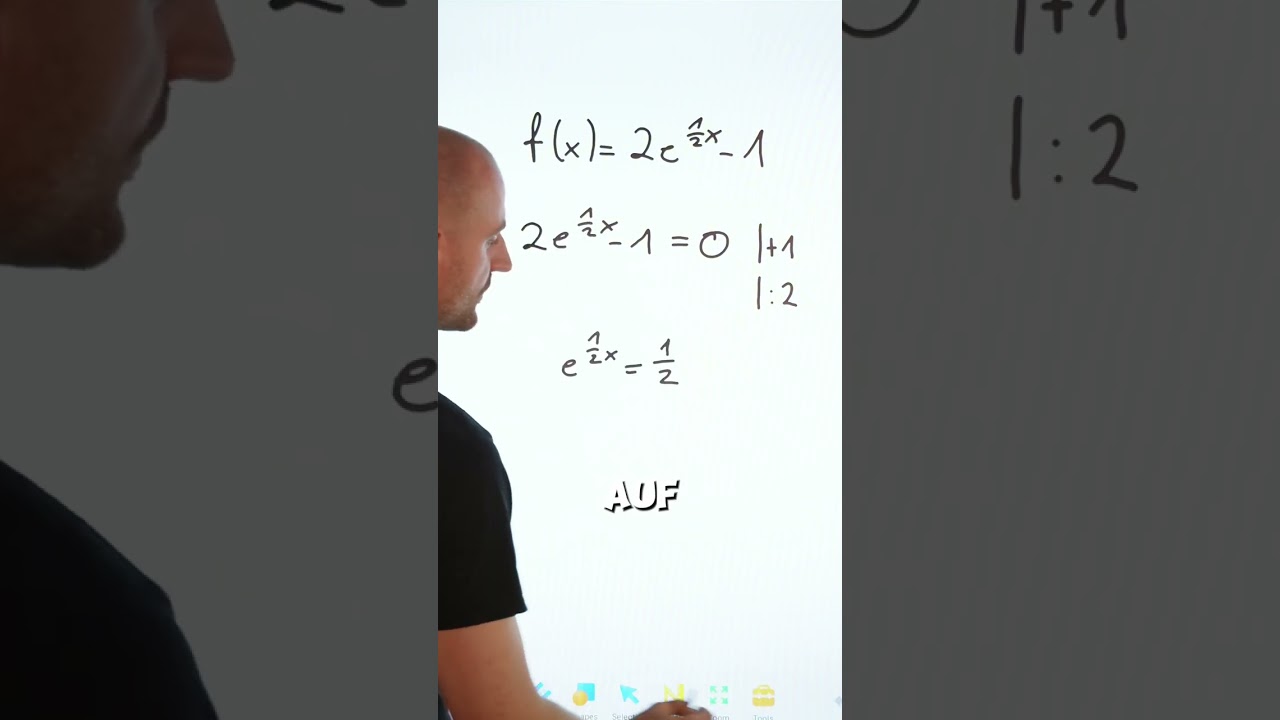 f(x) = 2e^{\frac{1}{2}x} - 1
2e^{\frac{1}{2}x} - 1 = 0 |+1
|:2
e^{\frac{1}{2}x} = \frac{1}{2}
AUF
Select
Tools
|+1
|:2
e